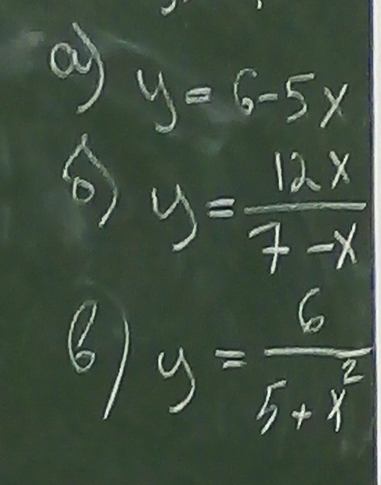 а) y = 6-5x
б) y = 12x / 7-x
в) y = 6 / 5+x²